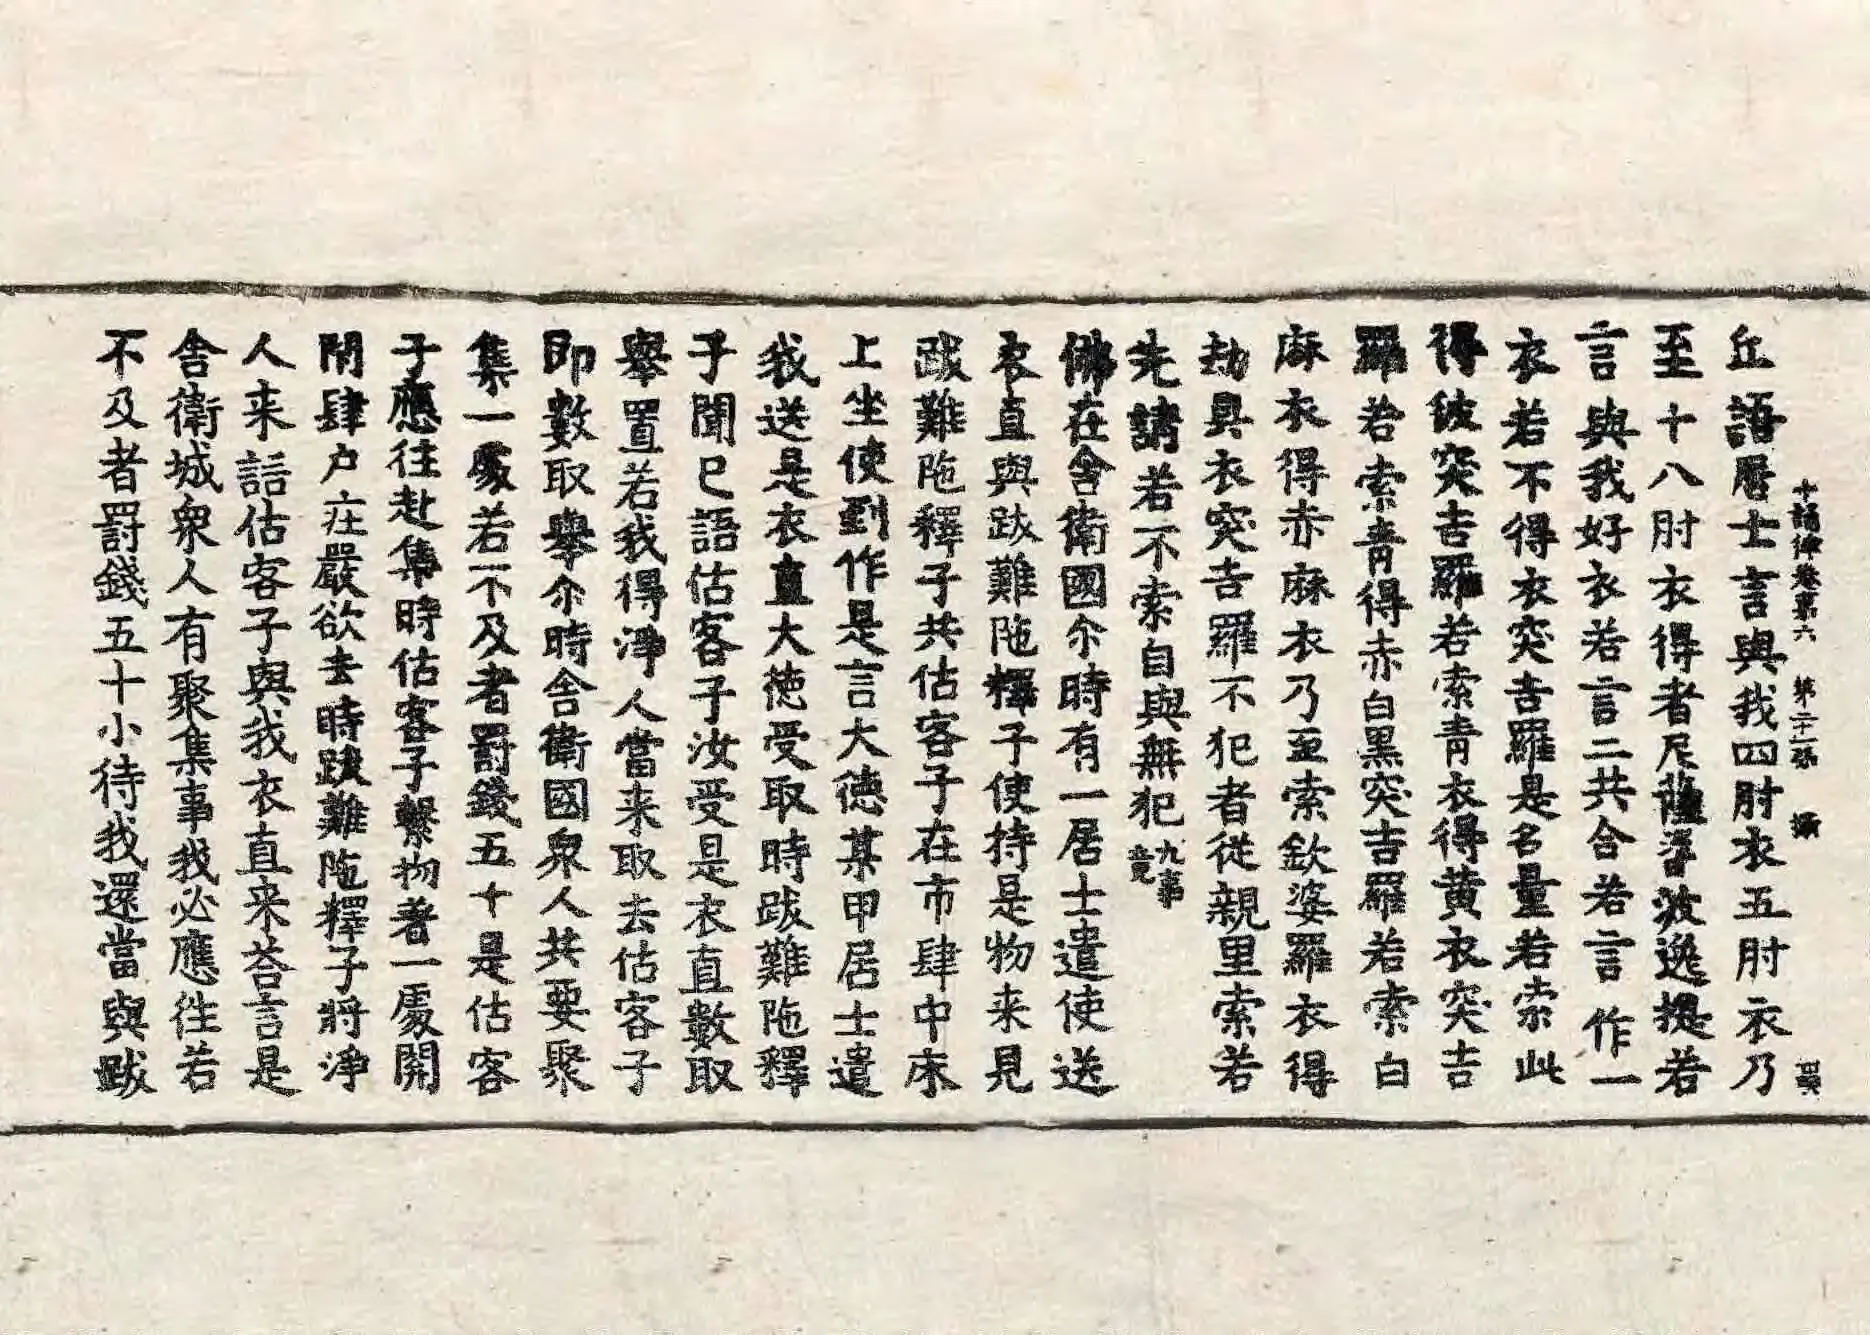 十誦律卷第六 第二十二張 攝
丘語居士言與我四肘衣五肘衣乃
至十八肘衣得者尼薩耆波逸提若
言與我好衣若言二共合若言作一
衣若不得衣突吉羅是名量若索此
得彼突吉羅若索青衣得黄衣突吉
羅若索青得赤白黑突吉羅若索白
麻衣得赤麻衣乃至索欽婆羅衣得
劫具衣突吉羅不犯者從親里索若
先請若不索自與無犯九事竟
佛在舍衛國尒時有一居士遣使送
衣直與跋難陁釋子使持是物来見
跋難陁釋子共估客子在市肆中床
上坐使到作是言大德某甲居士遣
我送是衣直大德受取時跋難陁釋
子聞已語估客子汝受是衣直數取
舉置若我得淨人當来取去估客子
即數取舉尒時舍衛國衆人共要聚
集一處若不及者罸錢五十是估客
子應往赴集時估客子繫物著一處開
閇肆戶庄嚴欲去時跋難陁釋子將淨
人来語估客子與我衣直来荅言是
舍衛城衆人有聚集事我必應往若
不及者罸錢五十小待我還當與跋